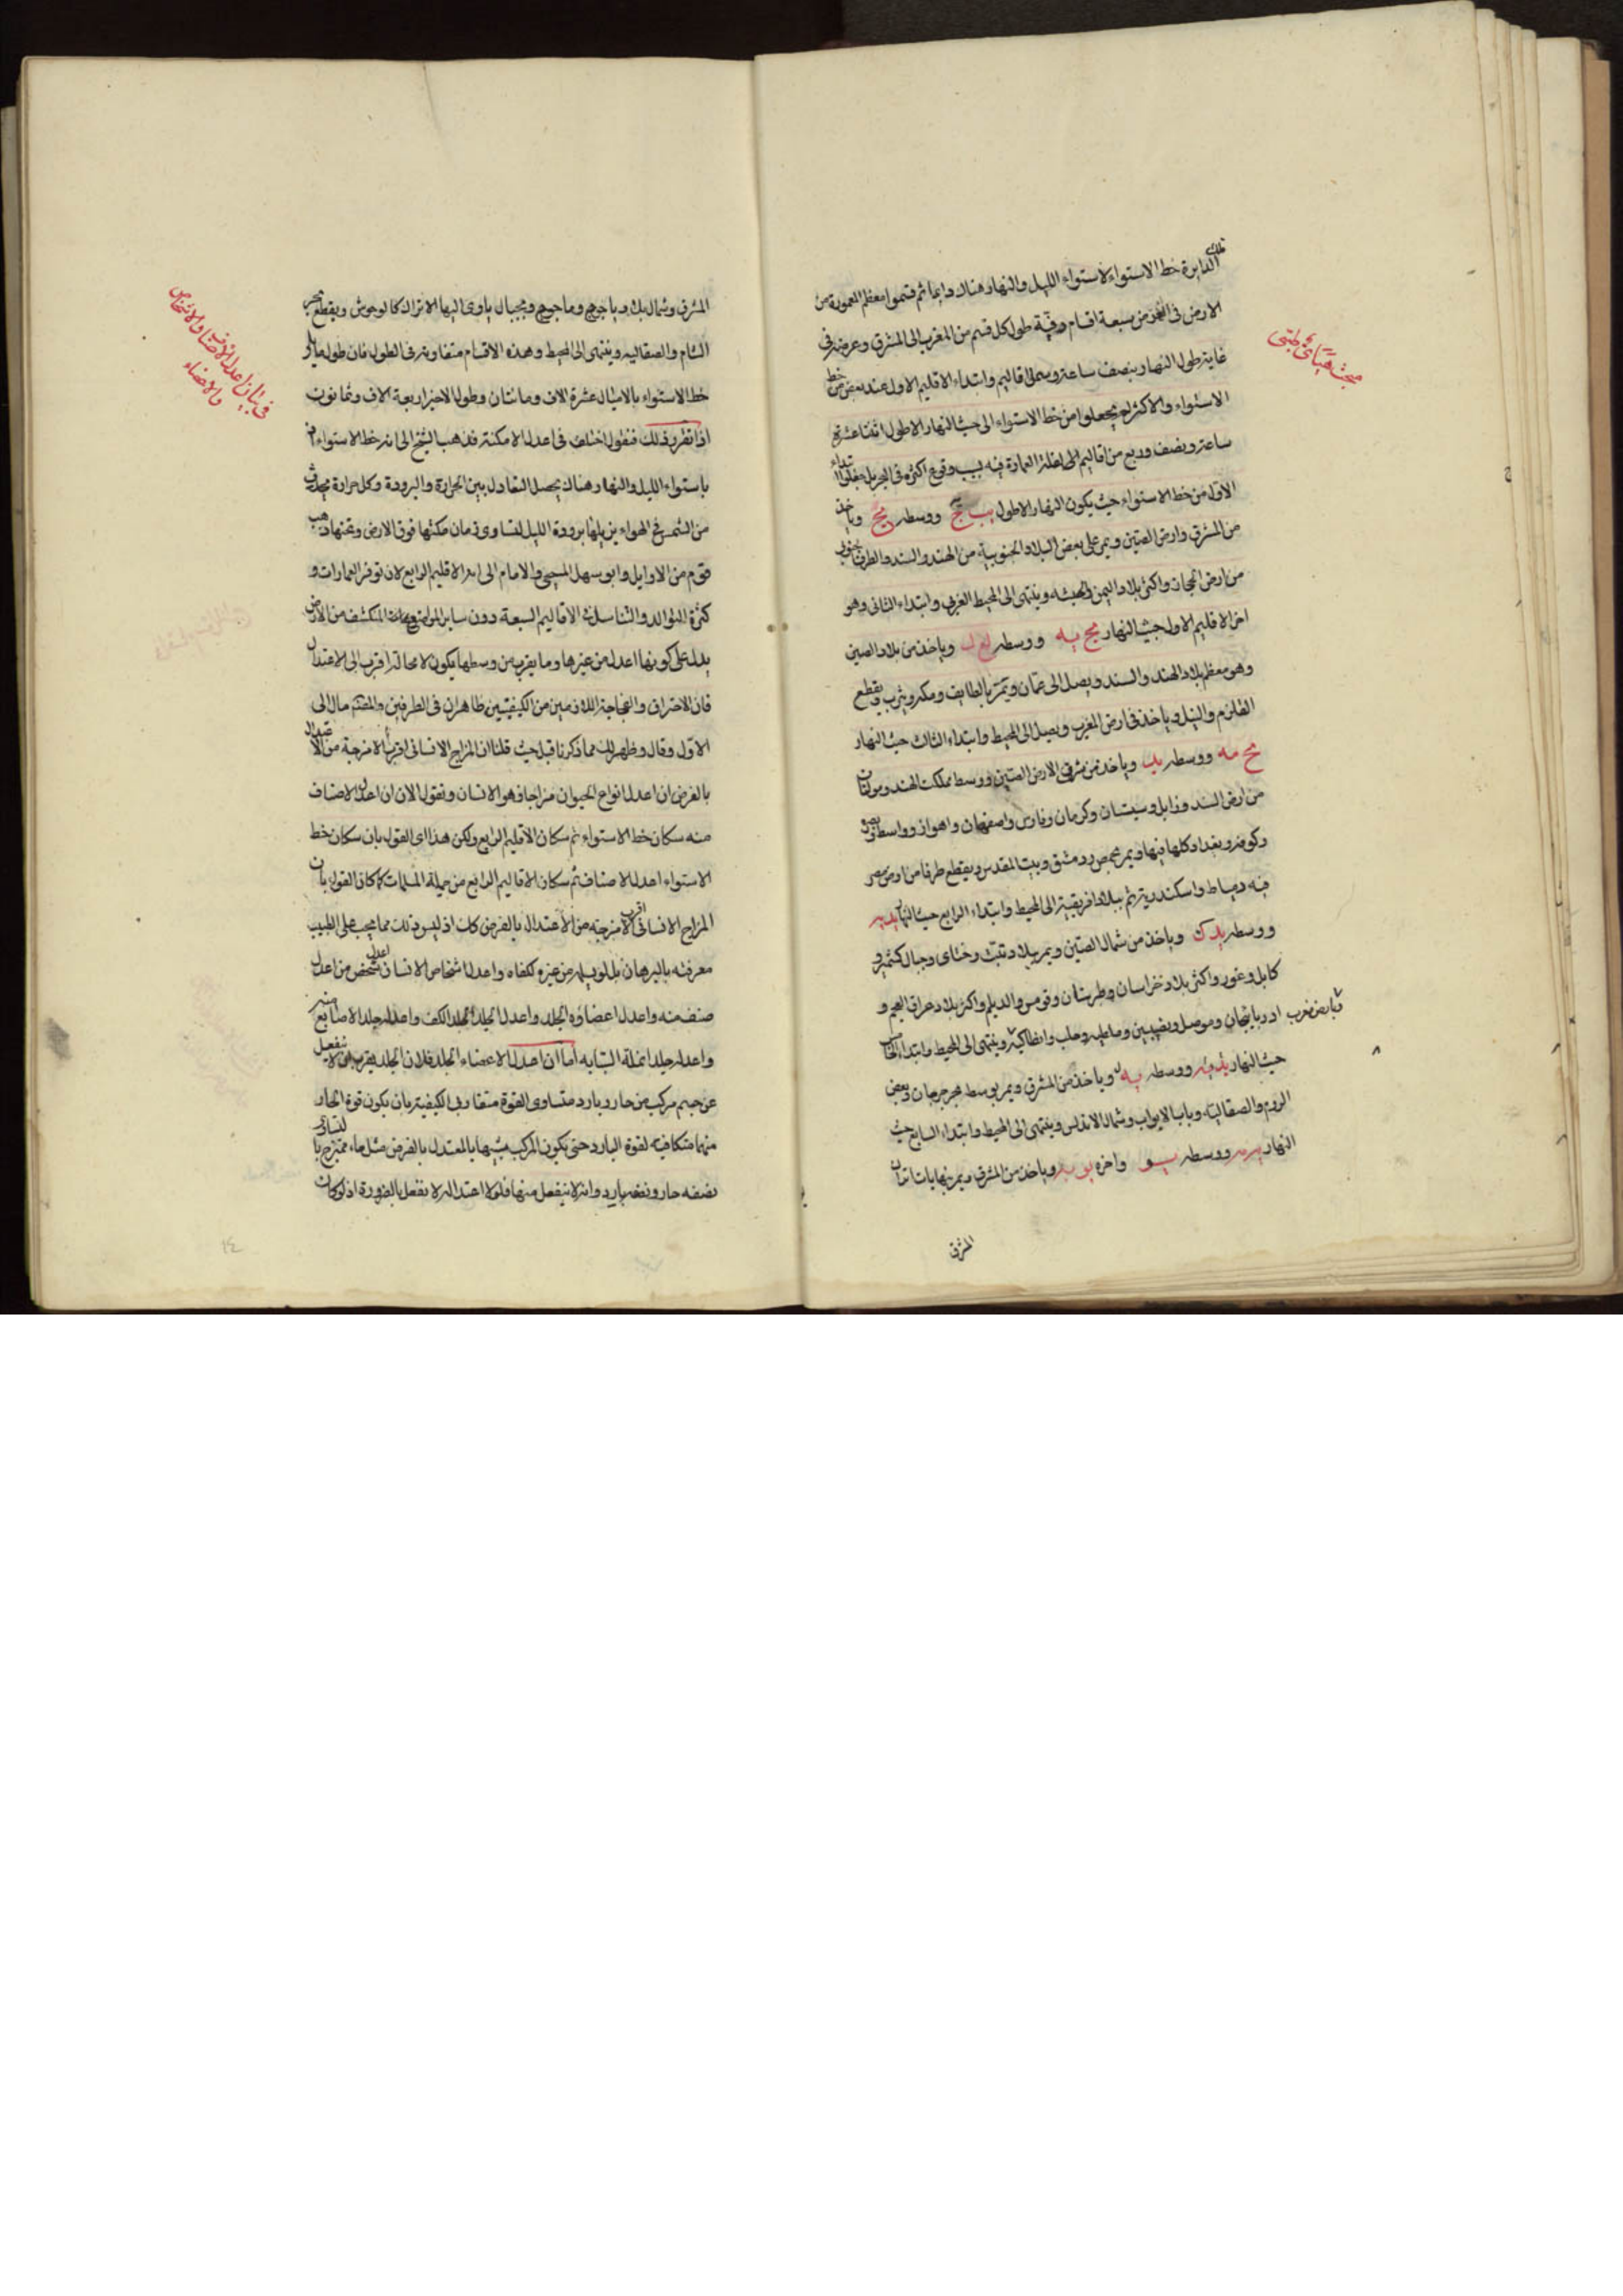 تلك
الدايرة خط الاستواء لاستواء الليل والنهار هناك دايما ثم قسموا معظم المعمورة من
الارض فى العرض سبعة اقسام دقيقة طول كل قسم من المغرب الى المشرق وعرضه فى
غاية طول النهار بنصف ساعة وسمى اقاليم وابتداء الاقليم الاول عند بعض من خط
الاستواء والاكثر لم يجعلوا من خط الاستواء الى حيث النهار الاطول اثنتا عشرة
ساعة ونصف وربع من اقاليم الى لقلة العمارة فيه بسبب وقوع اكثره فى البحر بل جعلوا ابتداء
الاول من خط الاستواء حيث يكون النهار الاطول ووسطه وياخذ
من المشرق وارض الصين ويمر على بعض البلاد الجنوبية من الهند والسند والطرف الجنوبى
من ارض الحجاز واكثر بلاد اليمن والحبشه وينتهى الى المحيط الغربى وابتداء الثانى وهو
اخر الاقليم الاول حيث النهار يج يه ووسطه وياخذ من بلاد الصين
وهو معظم بلاد الهند والسند ويصل الى عمان ويمر بالطايف ومكه ويثرب ويقطع
القلزم والنيل وياخذ فى ارض المغرب ويصل الى المحيط وابتداء الثالث حيث النهار
يج مه ووسطه يد وياخذ من شرقى الارض الصين ووسط مملكت الهند ومولتان
من ارض السند وزابل وسيستان وكرمان وفارس واصفهان واهواز وواسط وبصره
وكوفه وبغداد كلها فيها ويمر بحمص ودمشق وبيت المقدس ويقطع طرفا من ارض مصر
فيه دمياط واسكندرية ثم ببلاد افريقية الى المحيط وابتداء الرابع حيث النهار يد يه
ووسطه يد ك وياخذ من شمال الصين ويمر ببلاد تبت وختاى وجبال كشمير و
كابل وغور واكثر بلاد خراسان وطبرستان وقومس والديلم واكثر بلاد عراق العجم و
اذربايجان وموصل ونصيبين وملطيه وحلب وانطاكية وينتهى الى المحيط وابتداء الخامس
حيث النهار ووسطه يه وياخذ من المشرق ويمر بوسط بحر جرجان وبعض
الروم والصقالبة وباب الابواب وشمال الاندلس وينتهى الى المحيط وابتداء السابع حيث
النهار يه مه ووسطه يو واخره يو يه وياخذ من المشرق ويمر بنهايات اتراك
المشرق
مبحث طبى
المشرق وشمال بلاد ياجوج وماجوج وبجبال ياوى اليها الاتراك كالوحوش ويقطع بحر
الشام والصقالبه وينتهى الى المحيط وهذه الاقسام متفاوتة فى الطول فان طول ما يلى
خط الاستواء بالاميال عشرة الاف ومائتان وطول الاخير اربعة الاف وثمانون
اذا تقرر ذلك فنقول اختلف فى اعدل الامكنة فذهب الشيخ الى انه خط الاستواء لان
باستواء الليل والنهار هناك يحصل التعادل بين الحرارة والبرودة وكل حرارة يحدث
من الشمس فى الهواء يزيلها برودة الليل لتساوى زمان مكثها فوق الارض وتحتها وذهب
قوم من الاوايل وابو سهل المسيحى والامام الى انه الاقليم الرابع لان توفر العمارات و
كثرة التوالد والتناسل فى الاقاليم السبعة دون ساير المواضع المنكشفة من الارض
يدل على كونها اعدل من غيرها وما يقرب من وسطها يكون لا محالة اقرب الى الاعتدال
فان الاحتراق والفجاجة اللازمين من الكيفيتين ظاهران فى الطرفين والمصنف مال الى
الاول وقال وظهر لك مما ذكرنا قبل حيث قلنا ان المزاج الانسانى اقرب الامزجة من الاعتدال
بالفرض ان اعدل انواع الحيوان مزاجا وهو الانسان ونقول الان ان اعدل الاصناف
منه سكان خط الاستواء ثم سكان الاقليم الرابع ولكن هذا اى القول بان سكان خط
الاستواء اعدل الاصناف ثم سكان الاقاليم الرابع من جملة المسلمات كما كان القول بان
المزاج الانسانى اقرب الامزجة من الاعتدال بالفرض كان اذ ليس ذلك مما يجب على الطبيب
معرفته بالبرهان بل لو يسلم من غيره لكفاه واعدل اشخاص الانسان اعدل شخص من اعدل
صنف منه واعدل اعضاؤه الجلد واعدل الجلد جلد الكف واعدله جلد الاصابع منه
واعدله جلد انملة السبابه اما ان اعدل الاعضاء الجلد فلان الجلد يقرب من ان لا ينفعل
عن جسم مركب من حار وبارد متساوى القوة متقاربى الكيفية بان يكون قوة الحار
منهما متكافية لقوة البارد حتى يكون المركب شبيها بالمعتدل بالفرض مثل ماء ممتزج بالتساوى
نصفه حار ونصفه بارد وانه لا ينفعل منها فلولا اعتداله لانفعل بالضرورة اذ لو كان
فى بيان اعدل الاصناف والاشخاص
والاعضاء
١٤